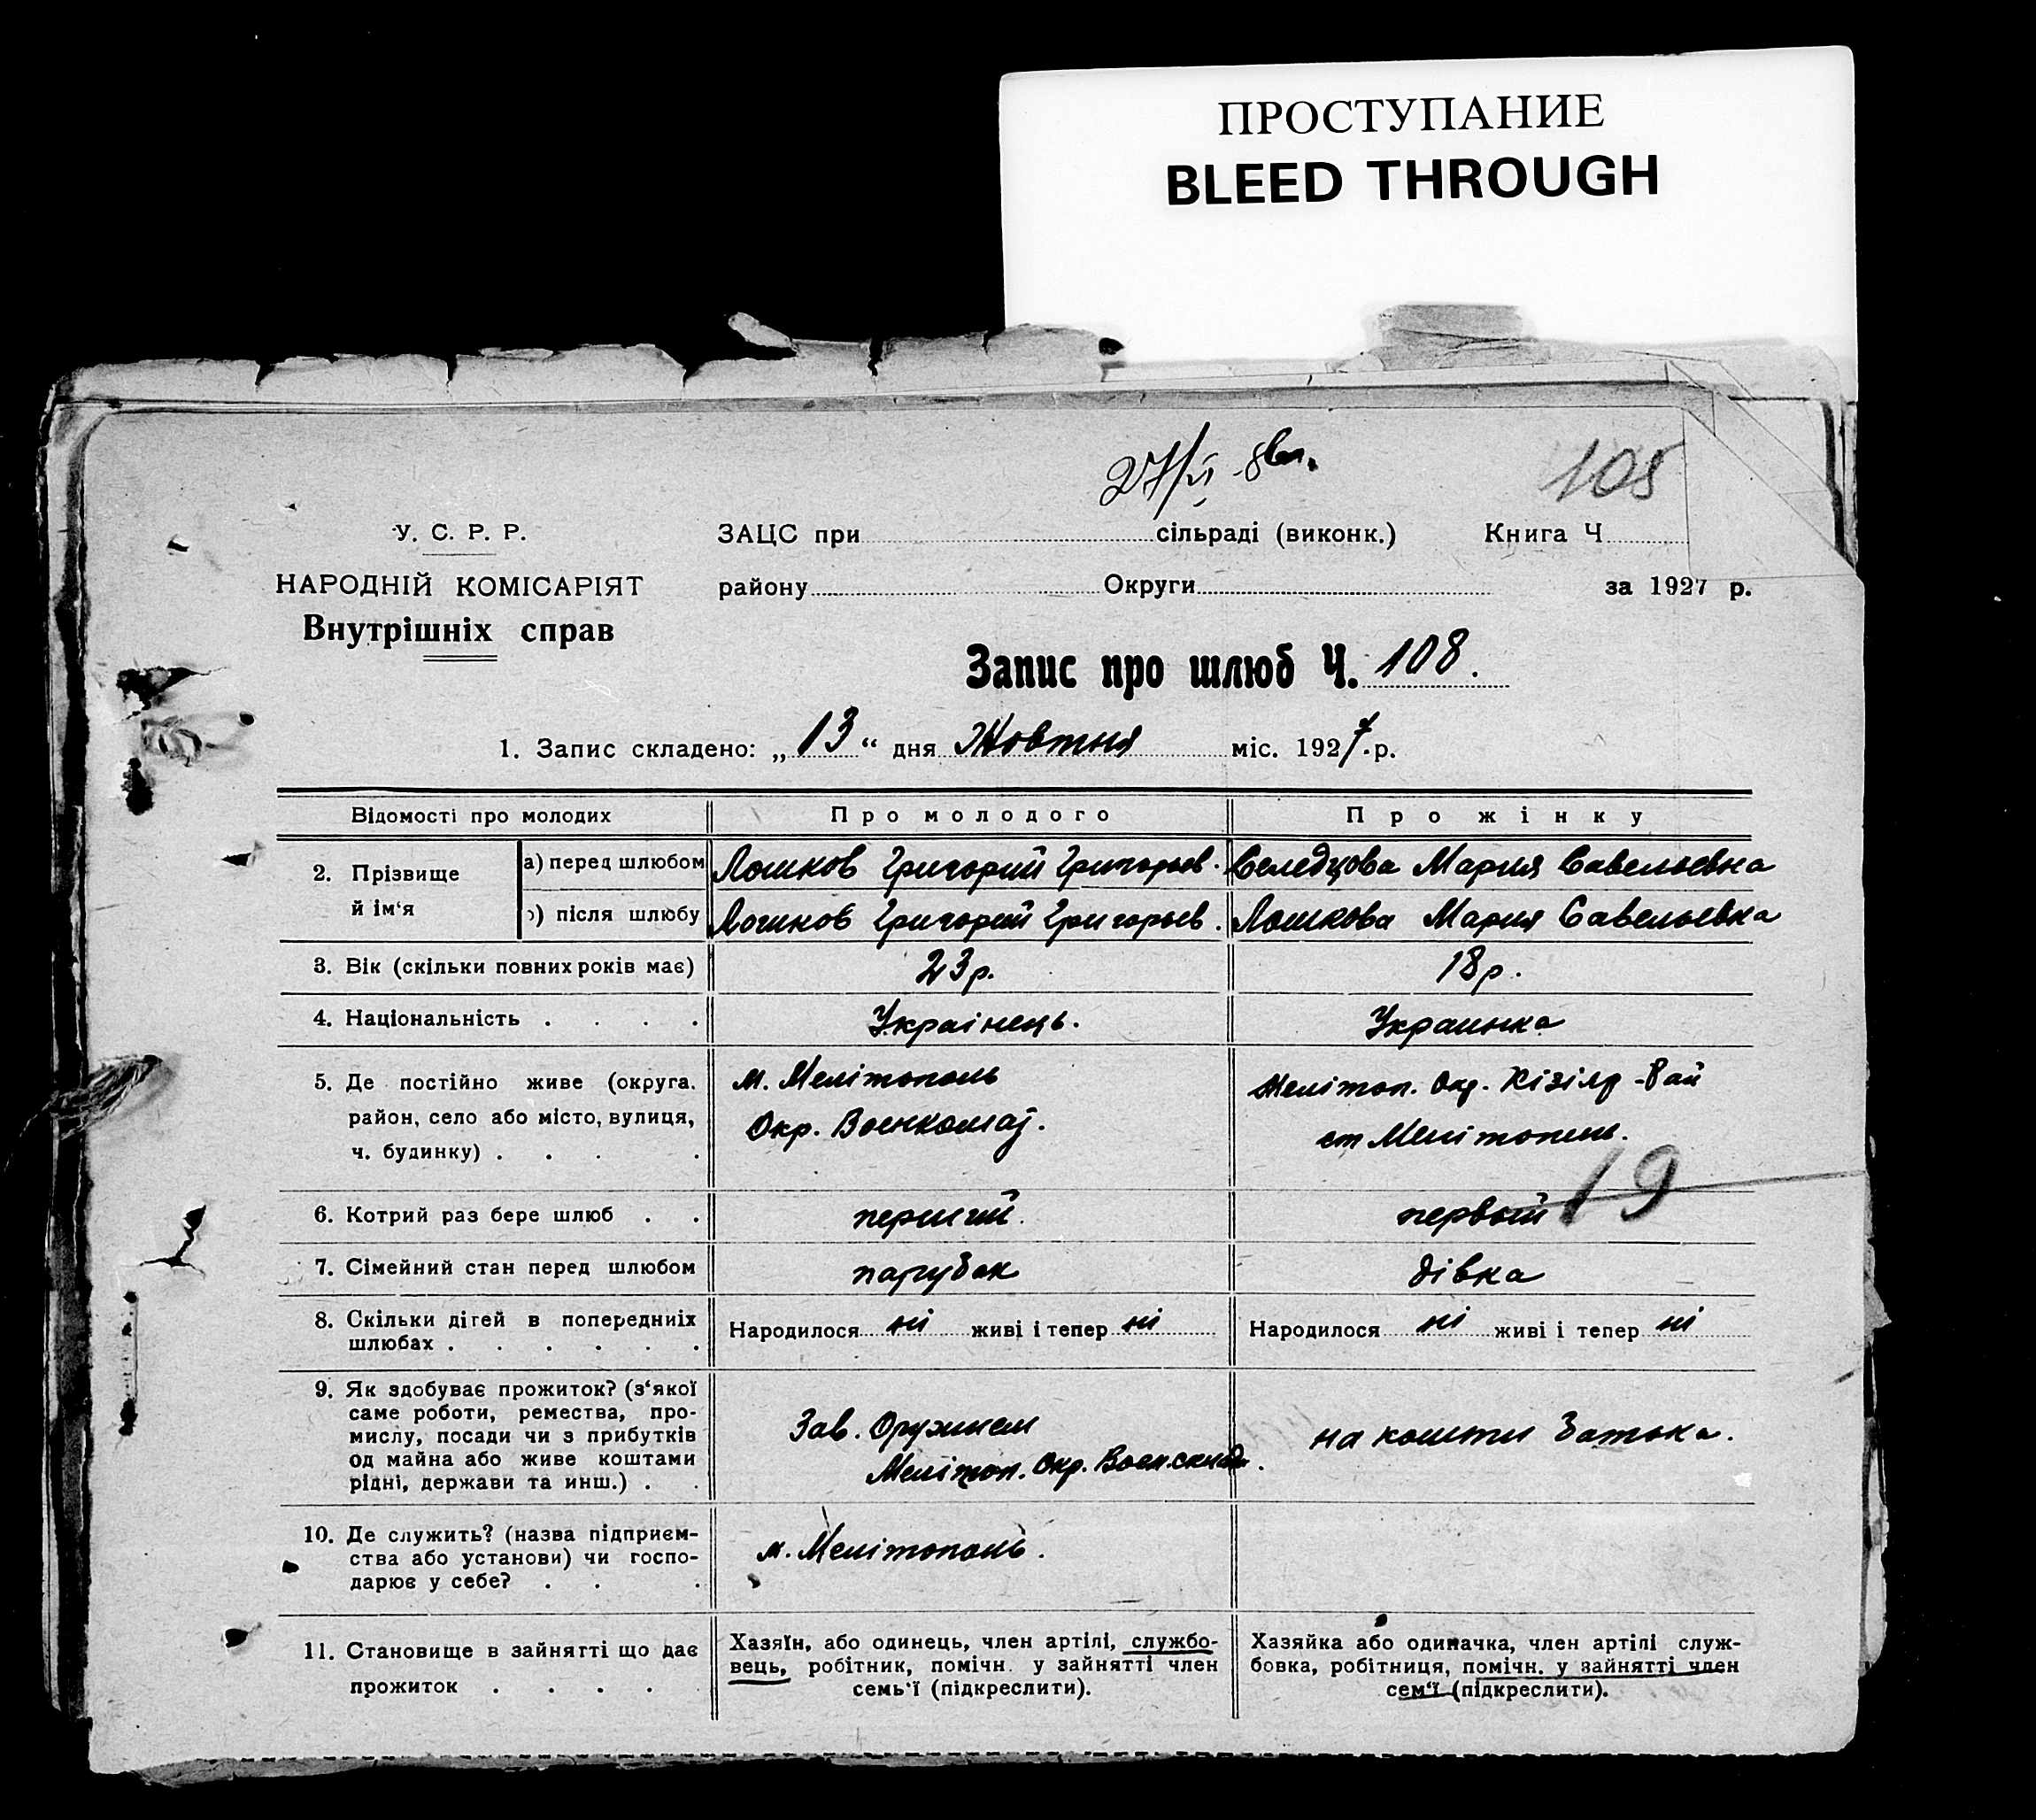 ПРОСТУПАНИЕ
BLEED THROUGH
108
У. С. Р. Р.
НАРОДНІЙ КОМІСАРІЯТ
Внутрішніх справ
ЗАЦС при сільраді (виконк.) Книга Ч
району Округи за 1927 р.
Запис про шлюб Ч. 108.
1. Запис складено: „ 13 “ дня Жовтня міс. 1927 р.
Відомості про молодих Про молодого Про жінку
2. Прізвище й ім‘я
а) перед шлюбом Лошков Григорий Григорьев. Селедцова Мария Савельевна
) після шлюбу Лошков Григорий Григорьев. Лошкова Мария Савельевна
3. Вік (скільки повних років має) 23 р. 18 р.
4. Національність . . . . Українець. Украинка
5. Де постійно живе (округа. м. Мелітополь Мелітоп. Окр. Кізіяр
район, село або місто, вулиця, Окр. Военкомат. ст Мелітополь.
ч. будинку) . . . .
19
6. Котрий раз бере шлюб . . перший. первый
7. Сімейний стан перед шлюбом парубок дівка
8. Скільки дітей в попередниіх Народилося ні живі і тепер ні Народилося ні живі і тепер ні
шлюбах . . . . . .
9. Як здобуває прожиток? (з‘якої
саме роботи, ремества, про-
мислу, посади чи з прибутків Зав. Оружием на кошти Батька.
од майна або живе коштами Мелітоп. Окр.
рідні, держави та инш.) . .
10. Де служить? (назва підприєм- м. Мелітополь.
ства або установи) чи госпо-
дарює у себе? . . .
11. Становище в зайнятті що дає
прожиток . . . . .
Хазяїн, або одинець, член артілі, службо-
вець, робітник, помічн. у зайнятті член
семь‘ї (підкреслити).
Хазяйка або одиначка, член артілі служ-
бовка, робітниця, помічн. у зайнятті член
сем‘ї (підкреслити).